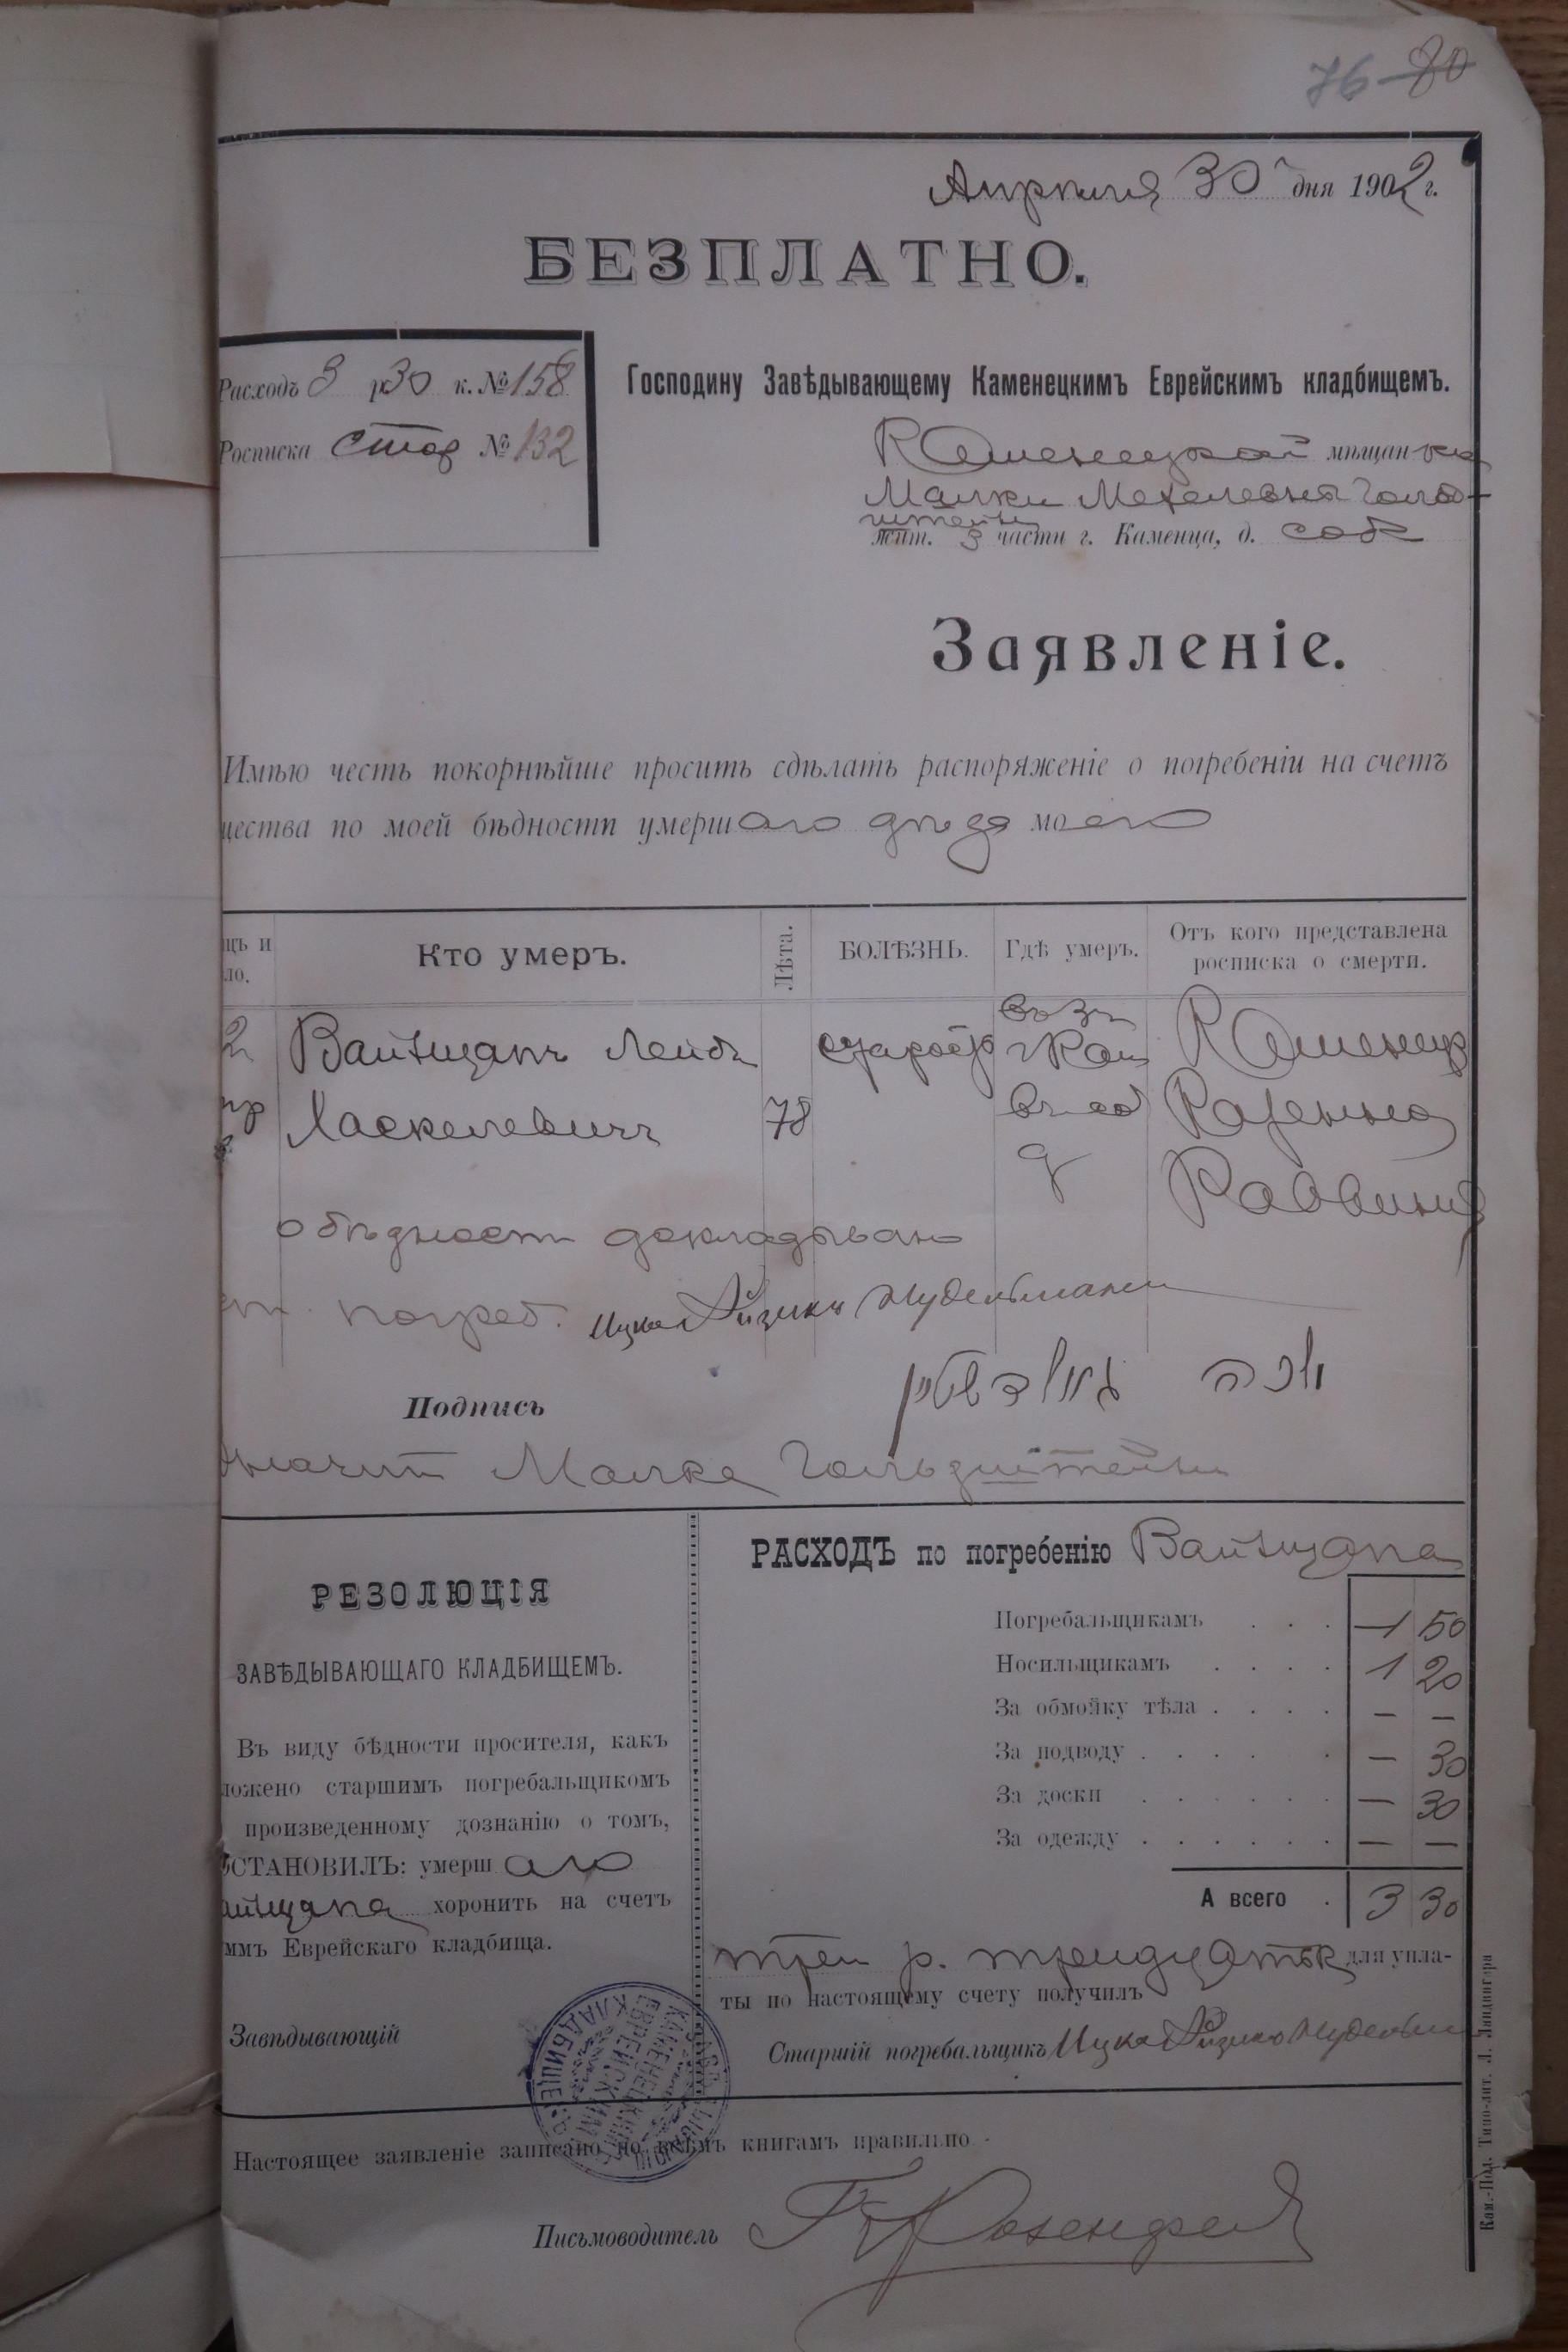 76 80
Апрѣля 30 дня 1902 г.
БЕЗПЛАТНО.
Расходъ 3 р 30 к. № 158
Росписка стар № 132
Господину Завѣдывающему Каменецкимъ Еврейскимъ кладбищемъ.
Каменецкой мѣщанки
Малки Мехелевны Гольд-
штейнъ
жит. 3 части г. Каменца, д. соб
Заявленіе.
Имѣю честь покорнѣйше просить сдѣлать распоряженіе о погребеніи на счетъ
щества по моей бѣдности умершаго дѣда моего
цъ и
ло.
Кто умеръ.
Лѣта.
БОЛѢЗНЬ.
Гдѣ умеръ.
Отъ кого представлена
росписка о смерти.
2 Вайнщапъ Лейбъ старость въ 3 ч г Кам Каменецк
пр Хаскелевичъ 78 въ соб Казеннаго
д Раввина
о бѣдности докладывано
погреб. Ицко Айзикъ Нудельманъ
מלכה גאלדשטיין
Подпись
значит Малка Гольдштейнъ
РЕЗОЛЮЦІЯ
ЗАВѢДЫВАЮЩАГО КЛАДБИЩЕМЪ.
Въ виду бѣдности просителя, какъ
ложено старшимъ погребальщикомъ
произведенному дознанію о томъ,
ОСТАНОВИЛЪ: умершаго
айнщапа хоронить на счетъ
ммъ Еврейскаго кладбища.
Завѣдывающій
РАСХОДЪ по погребенію Вайнщапа
Погребальщикамъ . . . 1 50
Носильщикамъ . . . . 1 20
За обмойку тѣла . . . . — —
За подводу . . . . . . — 30
За доски . . . . . . — 30
За одежду . . . . . . — —
А всего . 3 30
три р. тридцать к для упла-
ты по настоящему счету получилъ
Старшій погребальщикъ Ицко Айзикъ Нудельм
ЗАВѢДЫВАЮЩІЙ КАМЕНЕЦКИМЪ ЕВРЕЙСКИМЪ КЛАДБИЩЕМЪ
Настоящее заявленіе записано по всѣмъ книгамъ правильно.
Письмоводитель Розенфел
Кам.-Под. Типо-лит. Л. Ландвигера